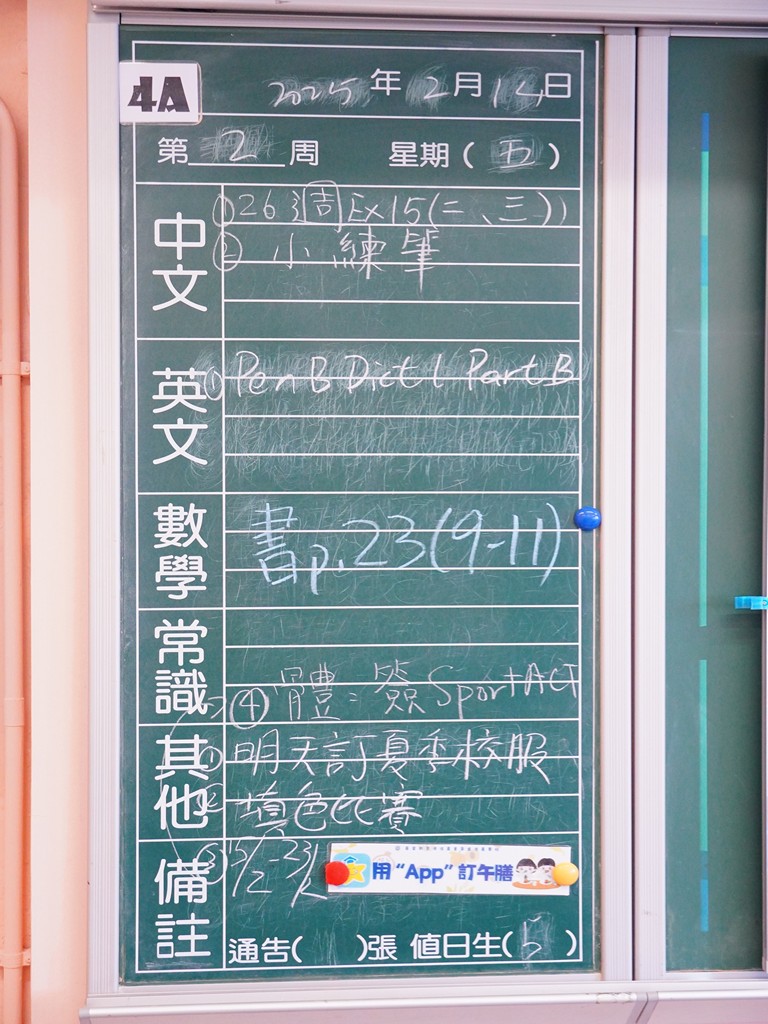 4A
2025年2月14日
第2周 星期(五)
中文
①26週Ex15(二、三)
②小練筆
英文
①Pen B Dict 1 Part B
數學
書p.23(9-11)
常識
④體:簽Sport ACT
其他
①明天訂夏季校服
②填色比賽
備註
③15/2-23/2
用“App”訂午膳
通告( )張 值日生(5)